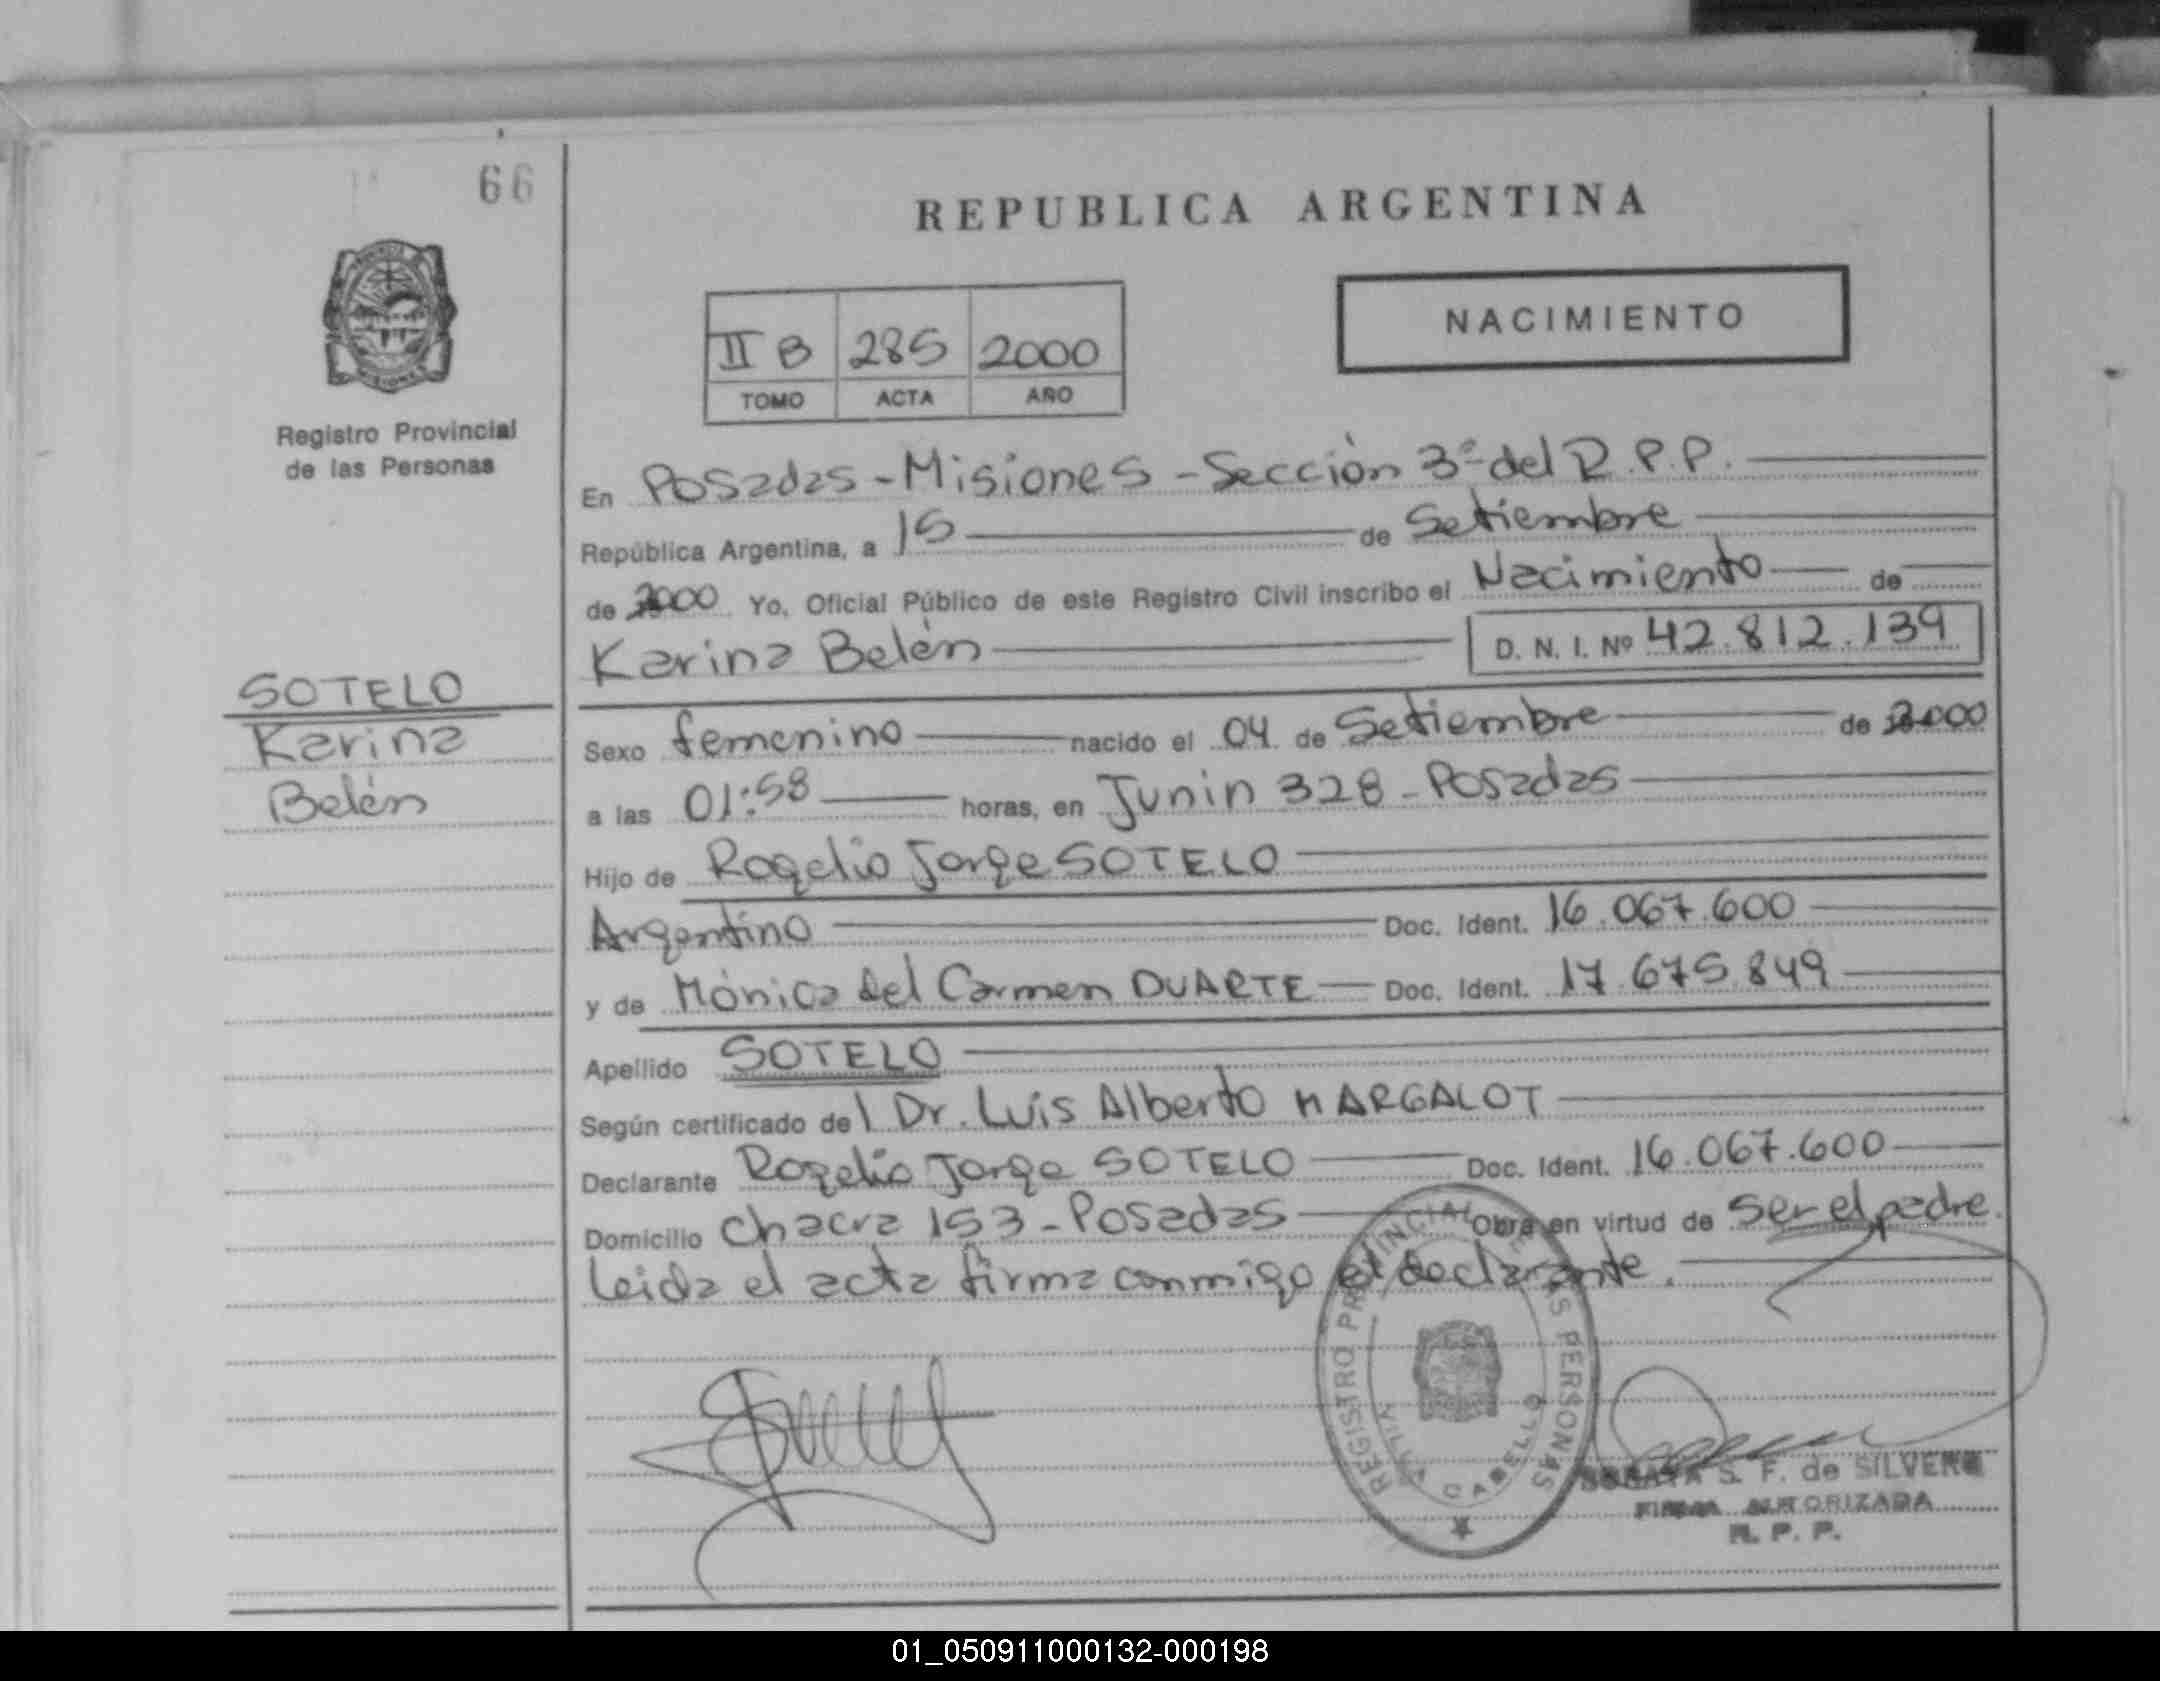 66
REPUBLICA ARGENTINA
NACIMIENTO
II B 285 2000
TOMO ACTA AÑO
Registro Provincial
de las Personas
En Posadas - Misiones - Sección 3ª del R.P.P.
República Argentina, a 15 de Setiembre
de 2000 Yo, Oficial Público de este Registro Civil inscribo el Nacimiento de
Karina Belén D. N. I. Nº 42.812.139
SOTELO
Karina
Belén
Sexo femenino nacido el 04 de Setiembre de 2000
a las 01:58 horas, en Junin 328 - Posadas
Hijo de Rogelio Jorge SOTELO
Argentino Doc. Ident. 16.067.600
y de Mónica del Carmen DUARTE Doc. Ident. 17.675.849
Apellido SOTELO
Según certificado del Dr. Luis Alberto MARGALOT
Declarante Rogelio Jorge SOTELO Doc. Ident. 16.067.600
Domicilio Chacra 153 - Posadas Obra en virtud de ser el padre.
Leida el acta firma conmigo el declarante.
REGISTRO PROVINCIAL DE LAS PERSONAS
S. F. de SILVERA
FIRMA AUTORIZADA
R. P. P.
01_050911000132-000198